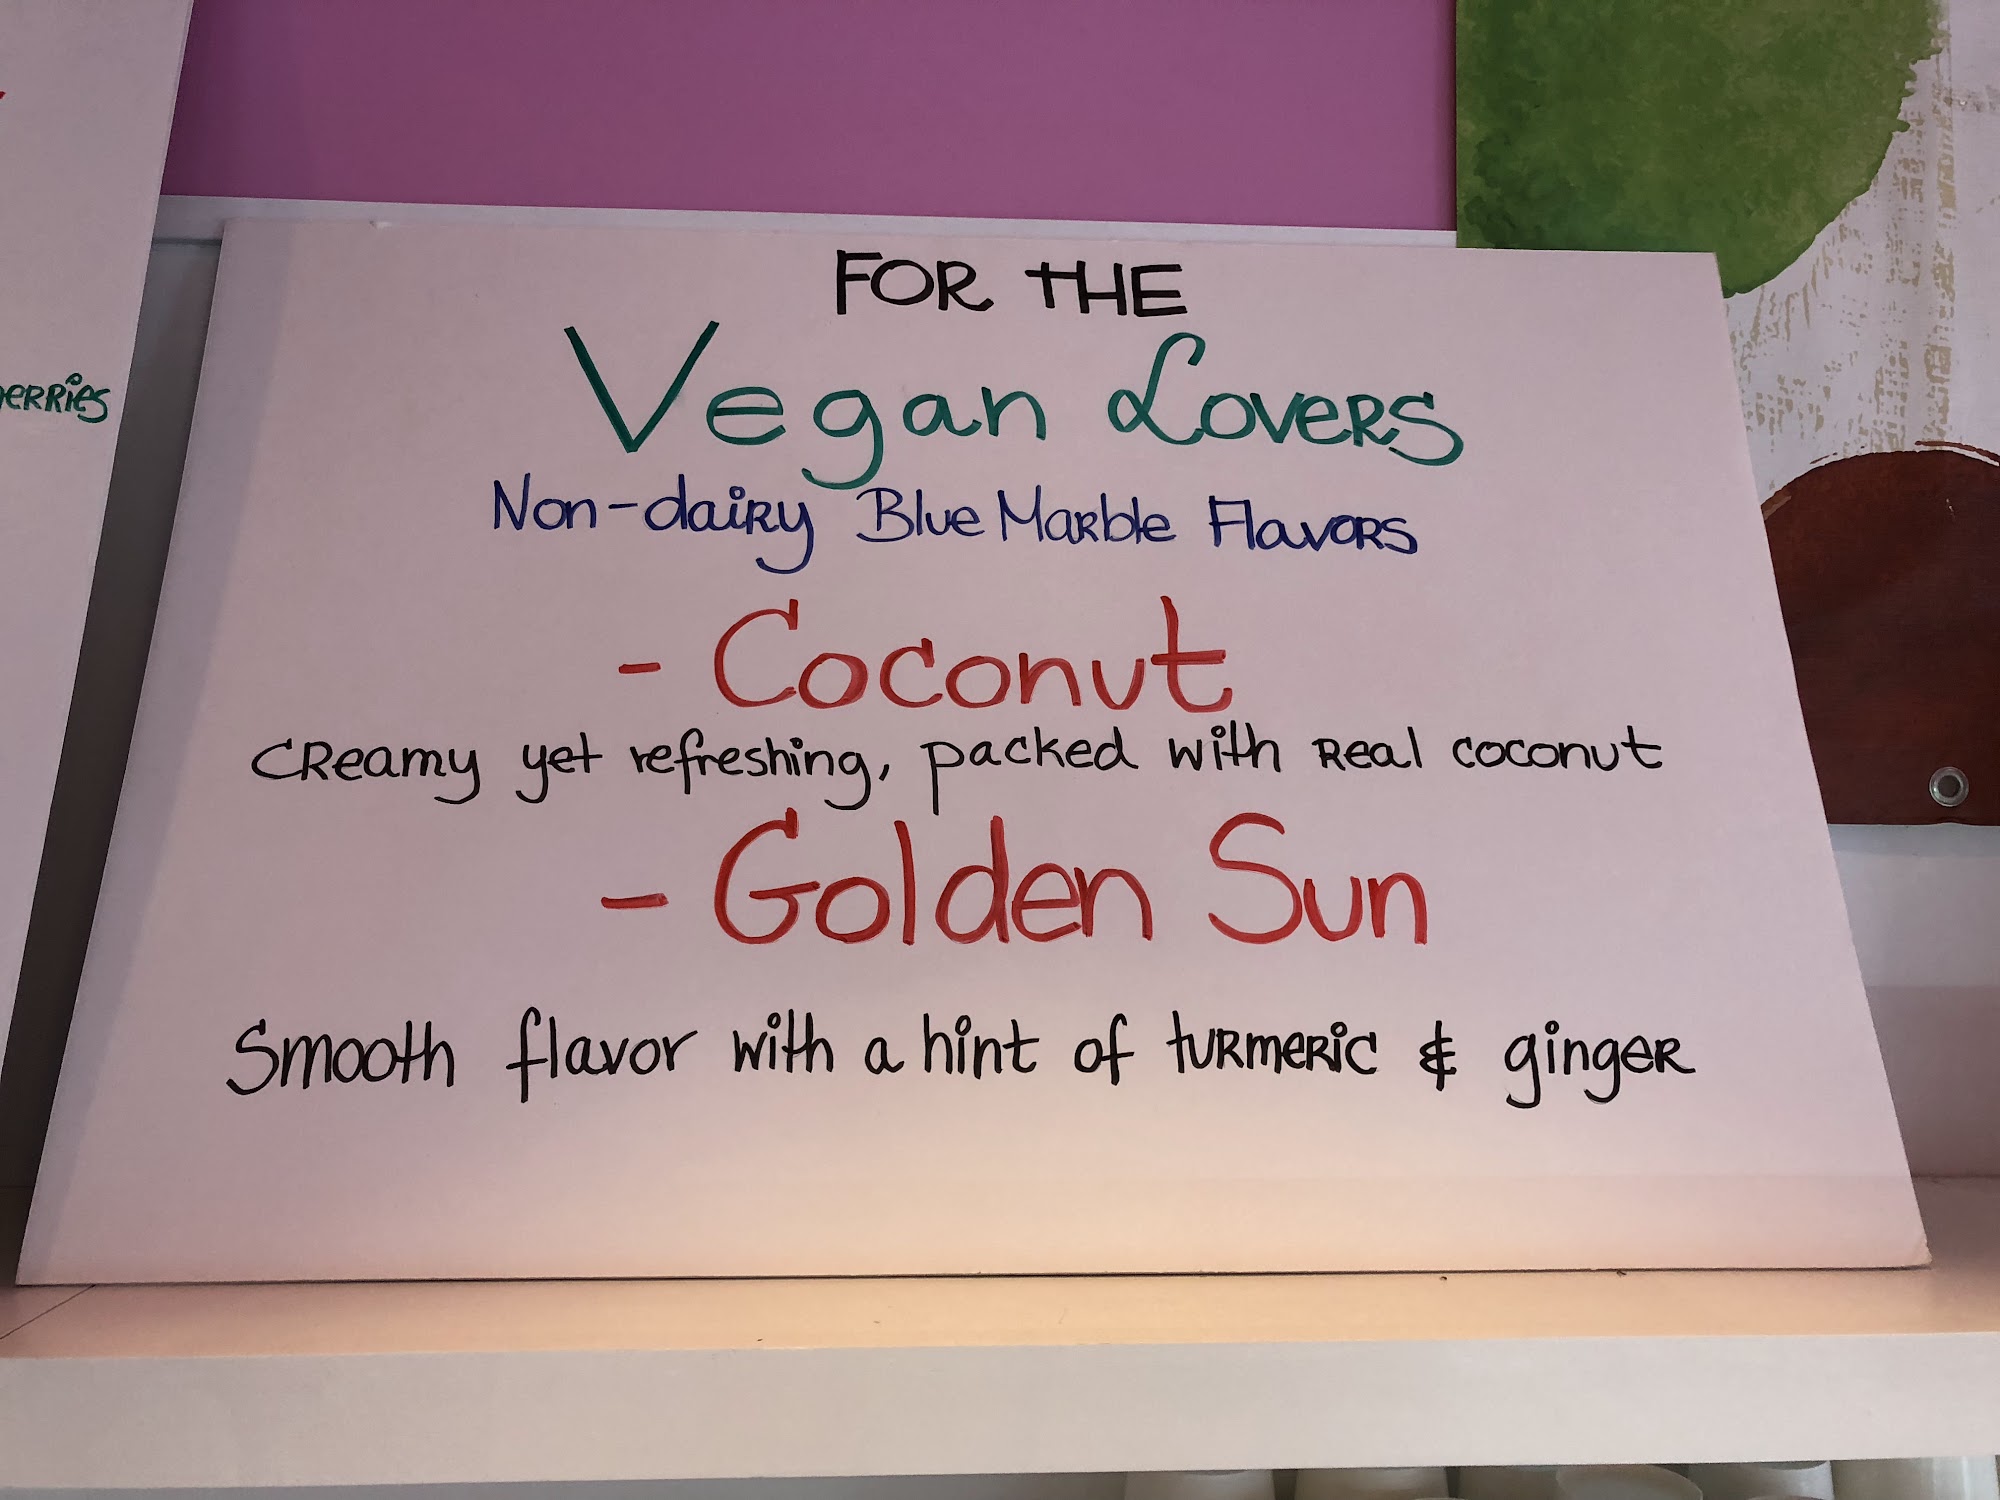 FOR THE
Vegan Lovers
Non-dairy Blue Marble Flavors
- Coconut
Creamy yet refreshing, packed with Real coconut
- Golden Sun
Smooth flavor with a hint of turmeric & ginger